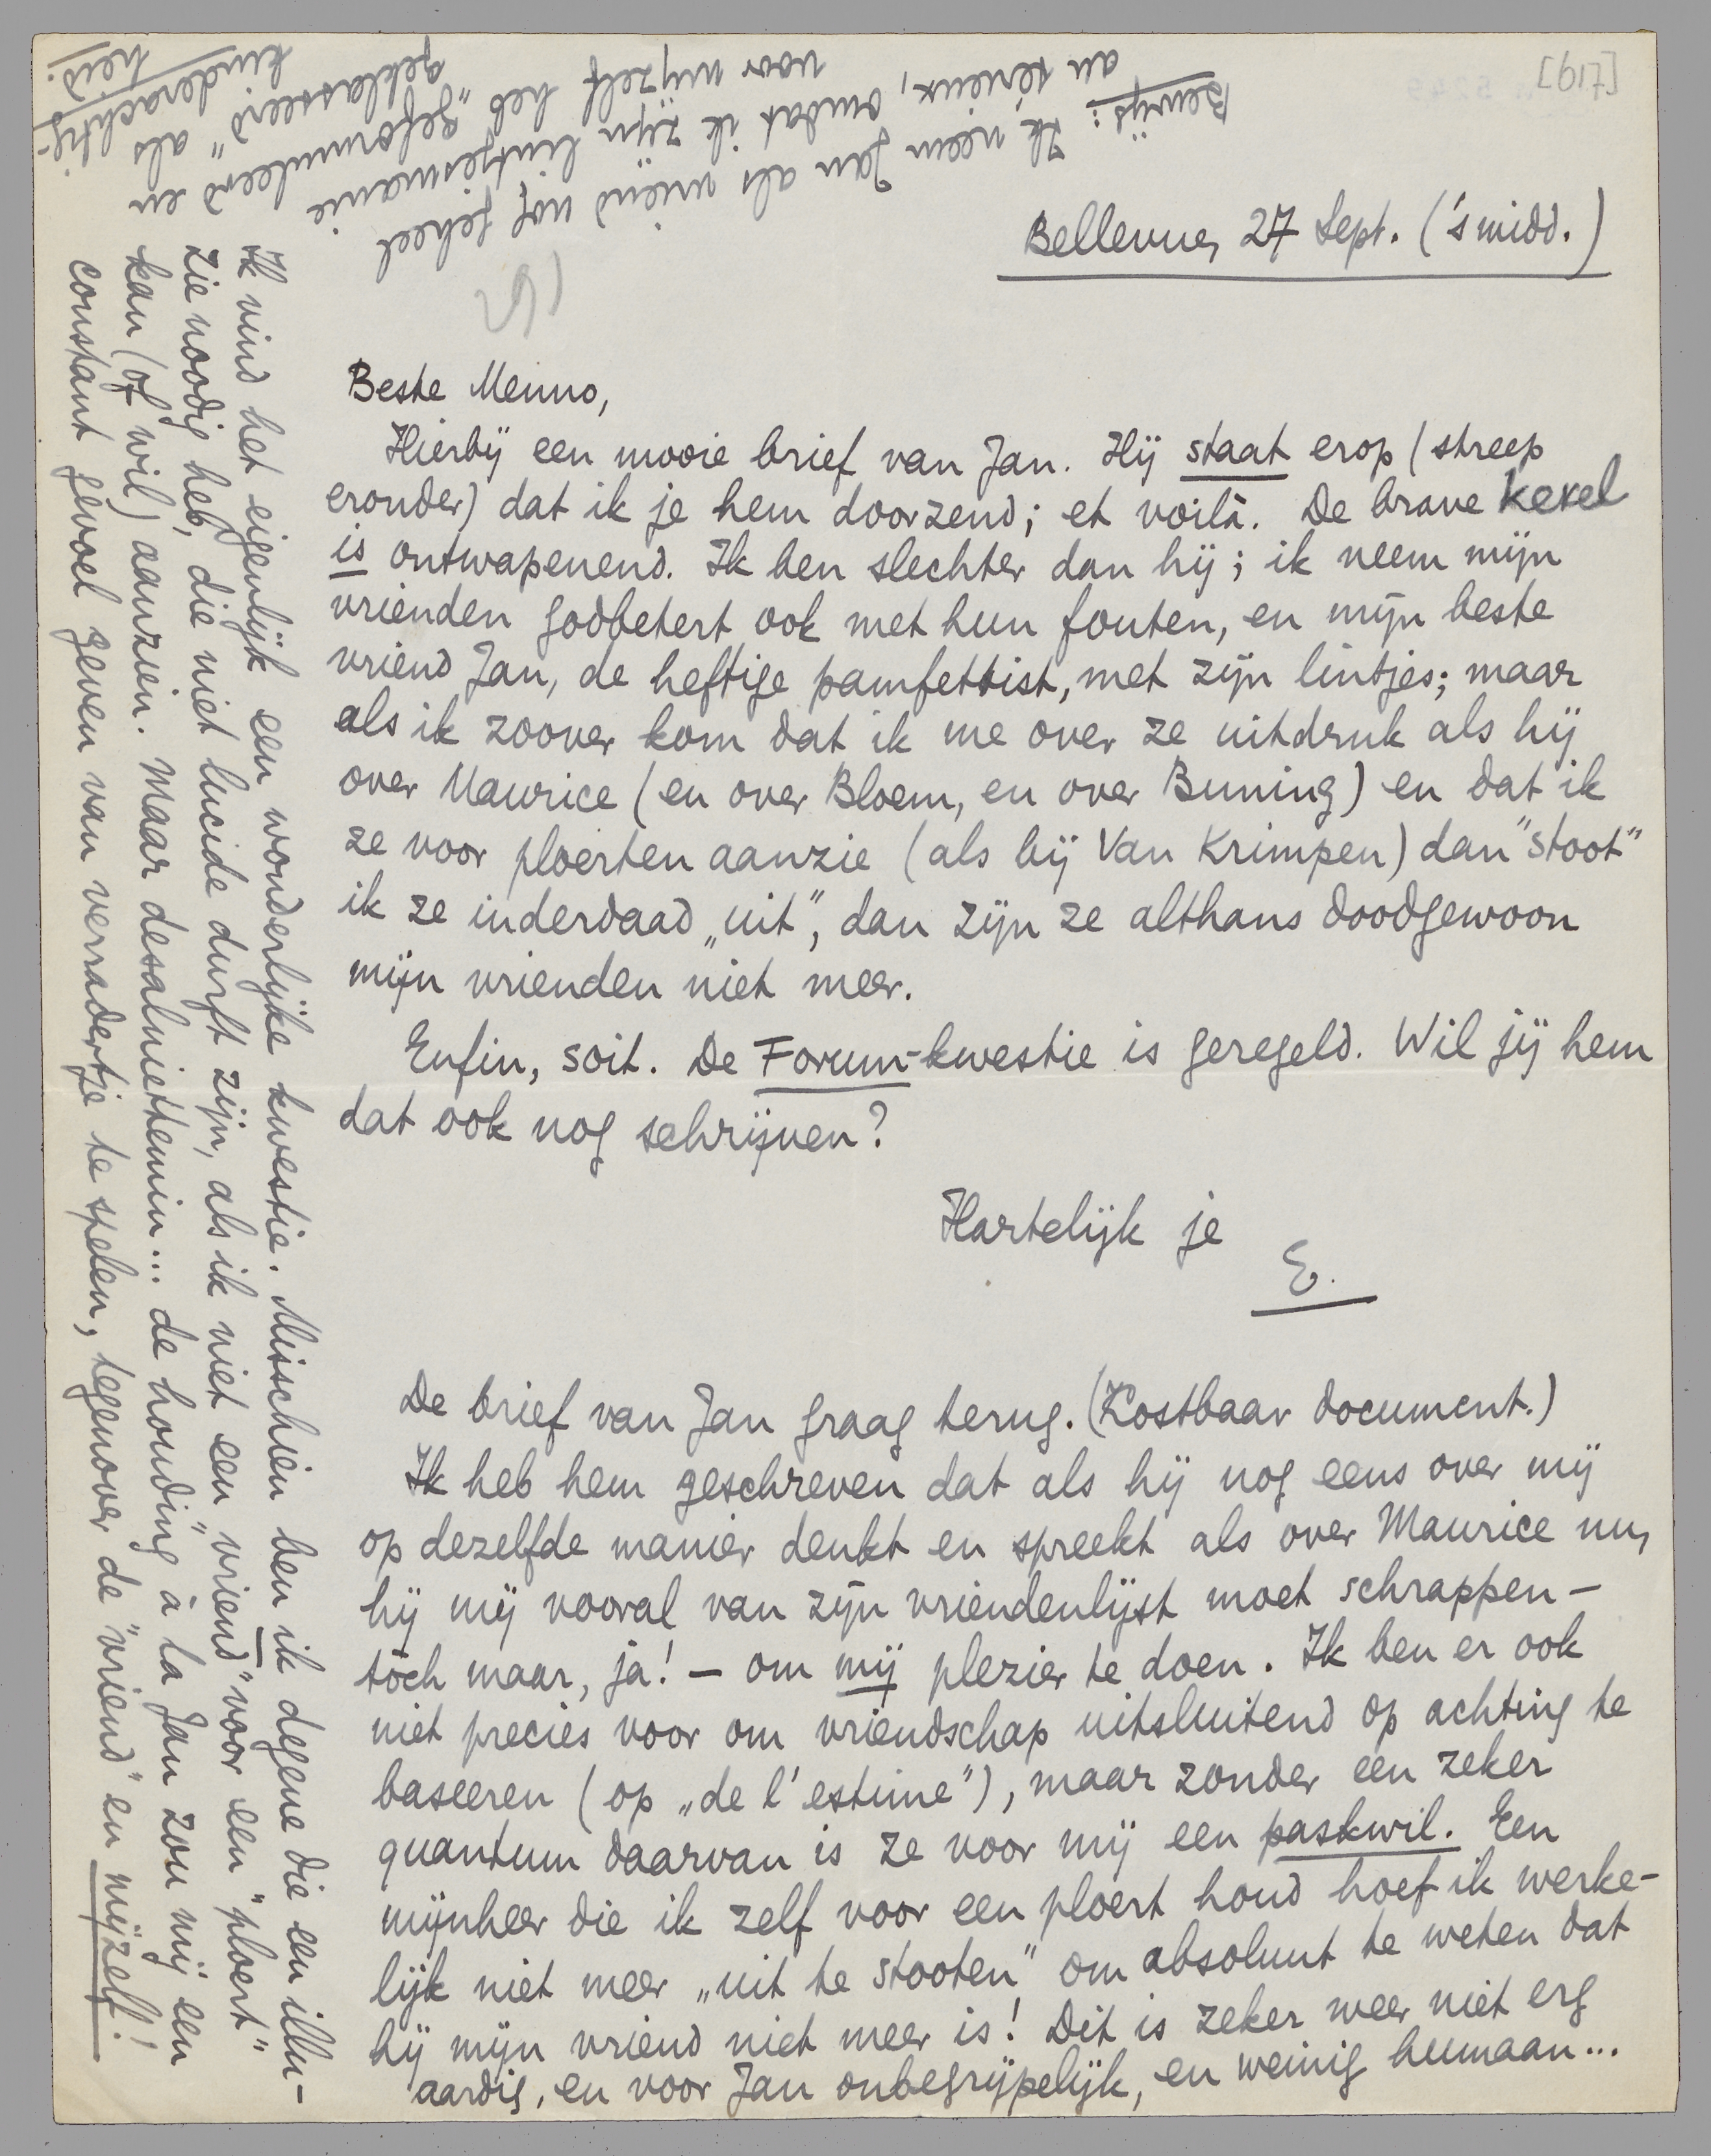 [617]
Bellevue, 27 Sept. ('s midd.)
Beste Menno,
Hierbij een mooie brief van Jan. Hij staat erop (streep
eronder) dat ik je hem doorzend; et voilà. De brave kerel
is ontwapenend. Ik ben slechter dan hij; ik neem mijn
vrienden godbetert ook met hun fouten, en mijn beste
vriend Jan, de heftige pamfettist, met zijn lintjes; maar
als ik zoover kom dat ik me over ze uitdruk als hij
over Maurice (en over Bloem, en over Buning) en dat ik
ze voor ploerten aanzie (als bij Van Krimpen) dan "stoot"
ik ze inderdaad „uit", dan zijn ze althans doodgewoon
mijn vrienden niet meer.
Enfin, soit. De Forum-kwestie is geregeld. Wil jij hem
dat ook nog schrijven?
Hartelijk je
E.
De brief van Jan graag terug. (Kostbaar document.)
Ik heb hem geschreven dat als hij nog eens over mij
op dezelfde manier denkt en spreekt als over Maurice nu,
hij mij vooral van zijn vriendenlijst moet schrappen –
tòch maar, ja! – om mij plezier te doen. Ik ben er ook
niet precies voor om vriendschap uitsluitend op achting te
baseeren (op „de l'estime"), maar zonder een zeker
quantum daarvan is ze voor mij een paskwil. Een
mijnheer die ik zelf voor een ploert houd hoef ik werke-
lijk niet meer „uit te stooten" om absoluut te weten dat
hij mijn vriend niet meer is! Dit is zeker weer niet erg
aardig, en voor Jan onbegrijpelijk, en weinig humaan...
Ik vind het eigenlijk een wonderlijke kwestie. Misschien ben ik degene die een illu-
zie noodig heb, die niet lucide durft zijn, als ik niet een "vriend" voor een "ploert"
kan (of wil) aanzien. Maar desalniettemin... de houding à la Jan zou mij een
constant gevoel geven van verradertje te spelen, tegenover de "vriend" en mijzelf!
Bewijs: Ik neem Jan als vriend nog geheel
au sérieux, omdat ik zijn lintjesmanie
voor mijzelf heb „geformuleerd en
geklasseerd" als
kinderachtig-
heid.